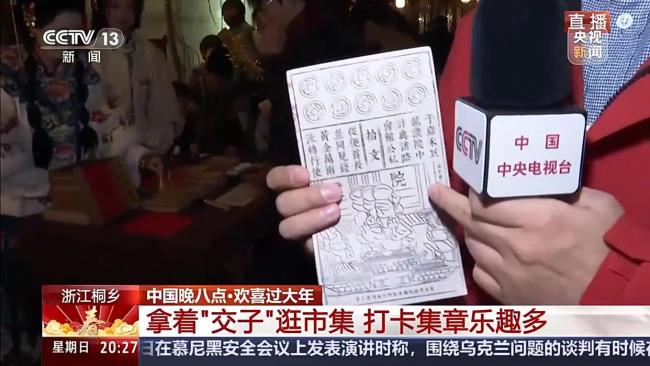 CCTV 13
新闻
直播
央视新闻
CCTV
中国
中央电视台
公私
拾文
並同見錢
黃金萬兩
流轉行使
院
浙江桐乡
春
中国晚八点·欢喜过大年
拿着"交子"逛市集 打卡集章乐趣多
星期日 20:27
日在慕尼黑安全会议上发表演讲时称，围绕乌克兰问题的谈判有时候